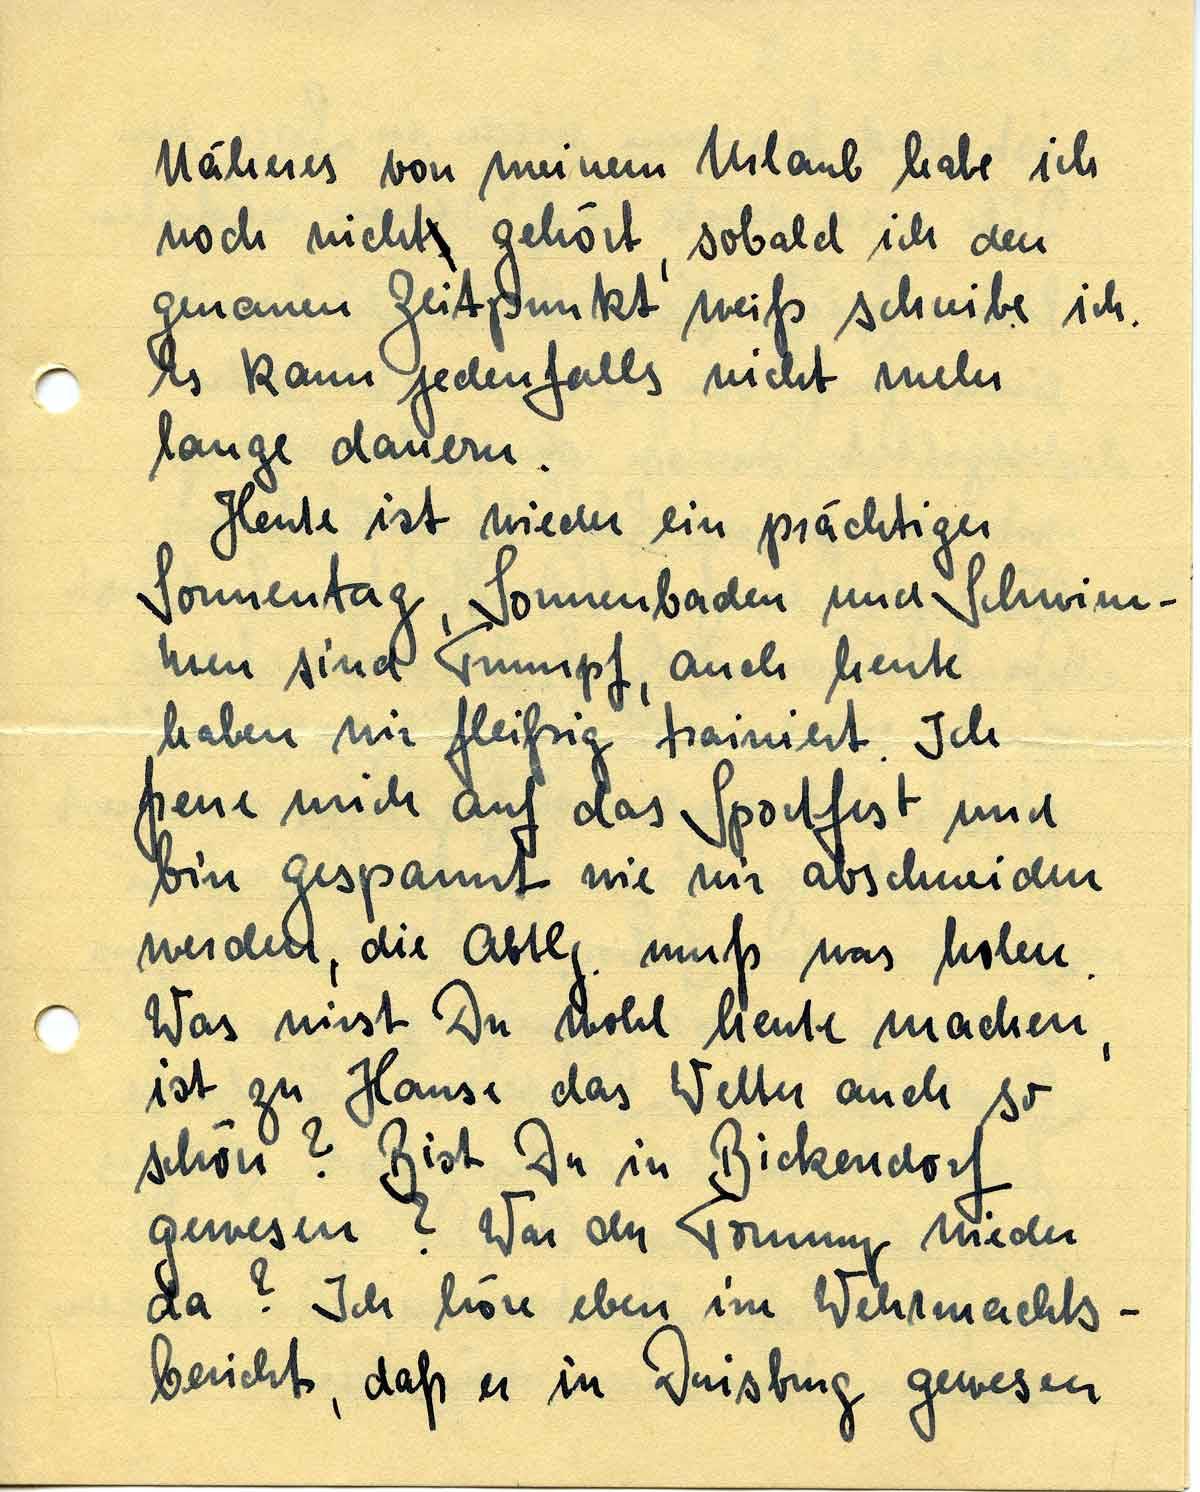 Näheres von meinem Urlaub habe ich
noch nicht gehört, sobald ich den
genauen Zeitpunkt weiß schreibe ich.
Es kann jedenfalls nicht mehr
lange dauern.
Heute ist wieder ein prächtiger
Sonnentag, Sonnenbaden und Schwim-
men sind Trumpf, auch heute
haben wir fleißig trainiert. Ich
freue mich auf das Sportfest und
bin gespannt wie wir abschneiden
werden, die Abtlg. muß was holen.
Was wirst Du wohl heute machen,
ist zu Hause das Wetter auch so
schön? Bist Du in Bickendorf
gewesen? War der Tommy wieder
da? Ich höre eben im Wehrmachts-
bericht, daß er in Duisburg gewesen